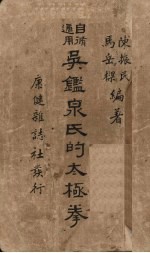 陳振民
馬岳樑 編著
自修
適用
吳鑑泉氏的太極拳
康健雜誌社發行